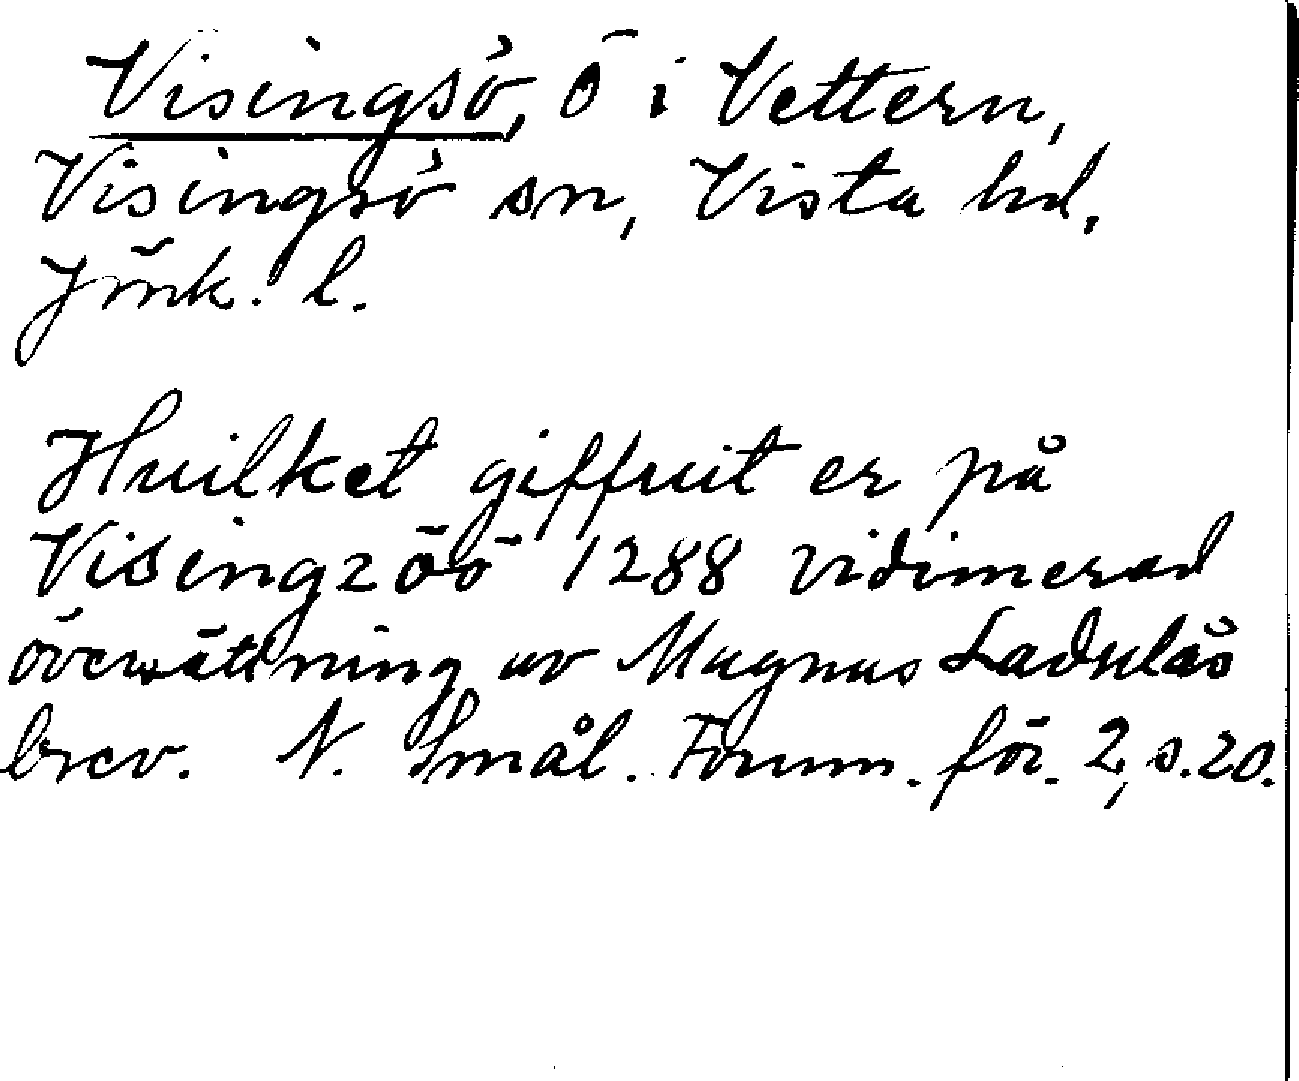 Visingsö, ö i Vettern,
Visingsö sn, Vista hd.
Jönk. l.
Huilket giffuit er på
Visingzöö 1288 vidimerad
översättning av Magnus Ladulås
brev. N. Smål. Fornm. för. 2, s. 20.